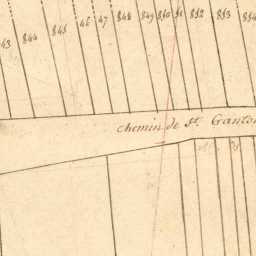 43 844 845 46 47 848 849 850 51 852 853 854
chemin de St. Ganton